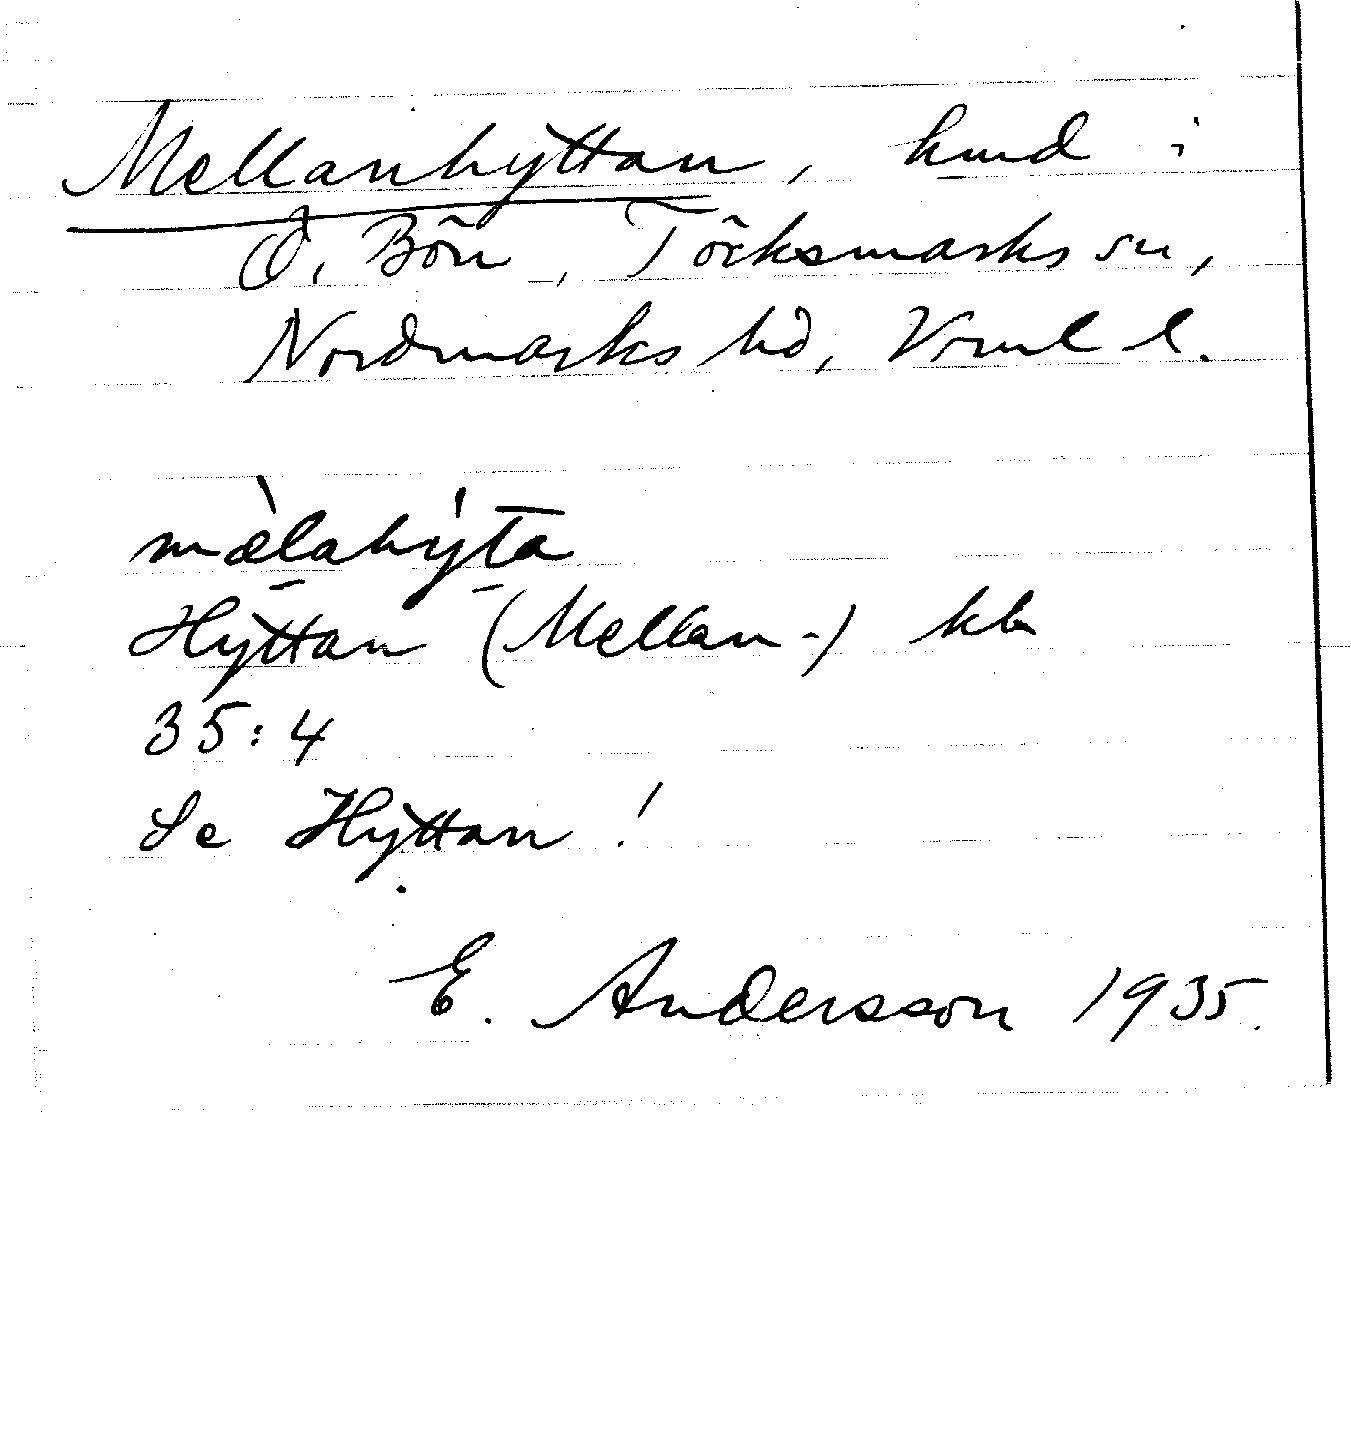 Mellanhyttan, hmd i
Ö. Bön, Töcksmarks sn,
Nordmarks hd, Vrml l.
mæ̀lahýta
Hyttan (Mellan-) kb
35:4
Se Hyttan!
E. Andersson 1935.